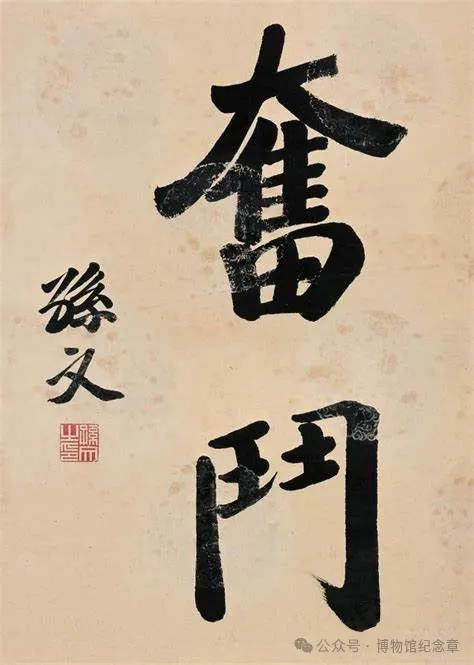 奮鬥
孫文
孫文之印
公众号·博物馆纪念章